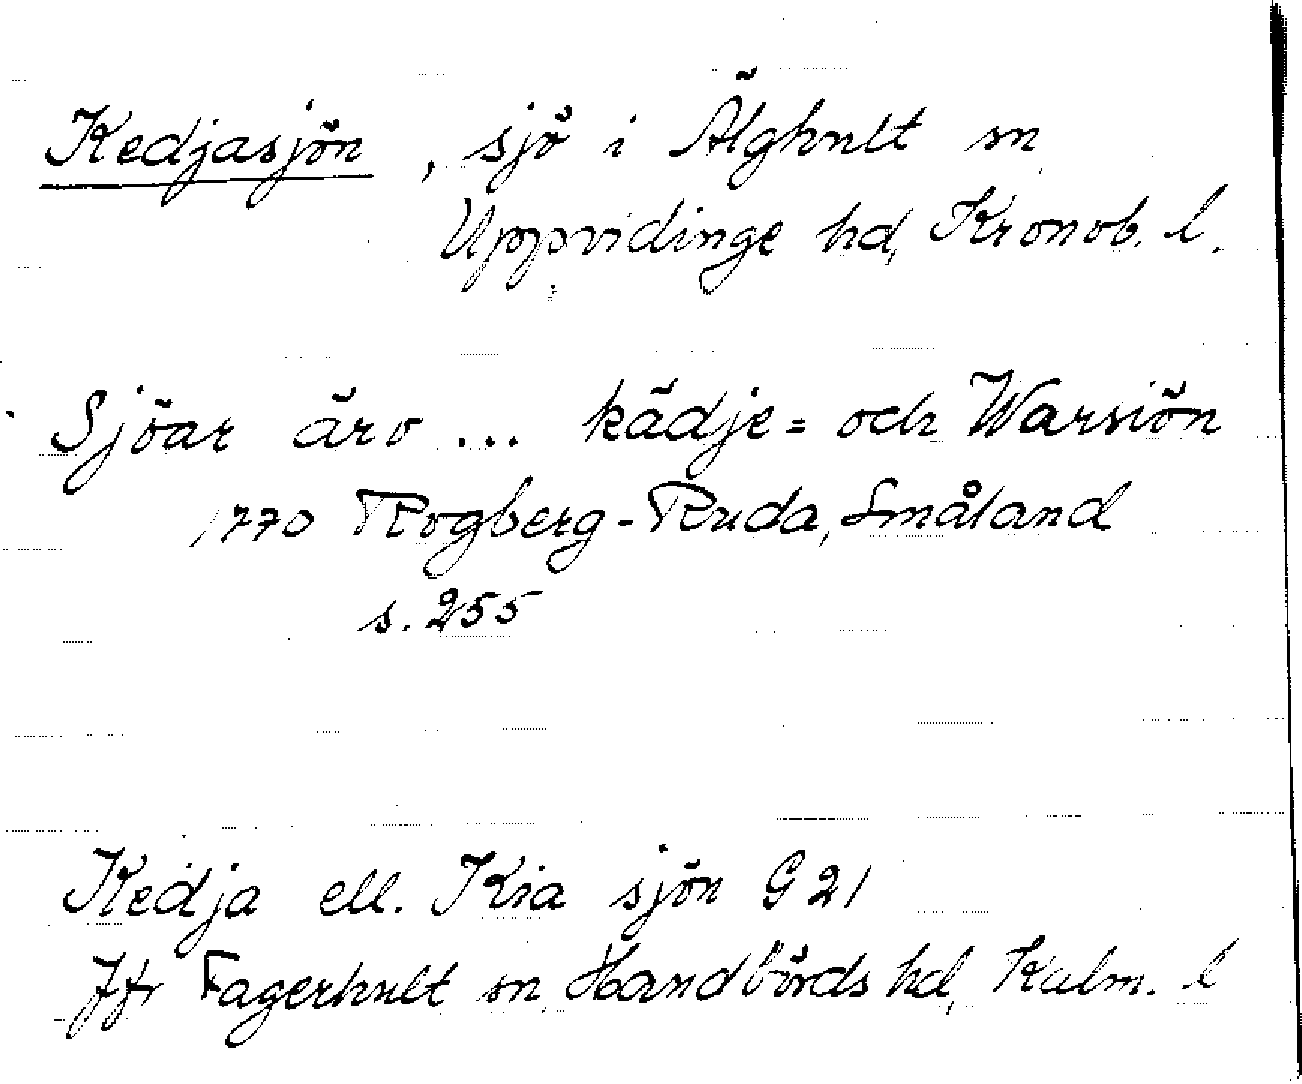 Kedjasjön, sjö i Älghult sn
Uppvidinge hd, Kronob. l.
Sjöar äro ... kädje= och Warsiön
1770 Rogberg-Ruda, Småland
s. 255
Kedja ell. Kia sjön G 21
Jfr Fagerhult sn, Handbörds hd, Kalm. l